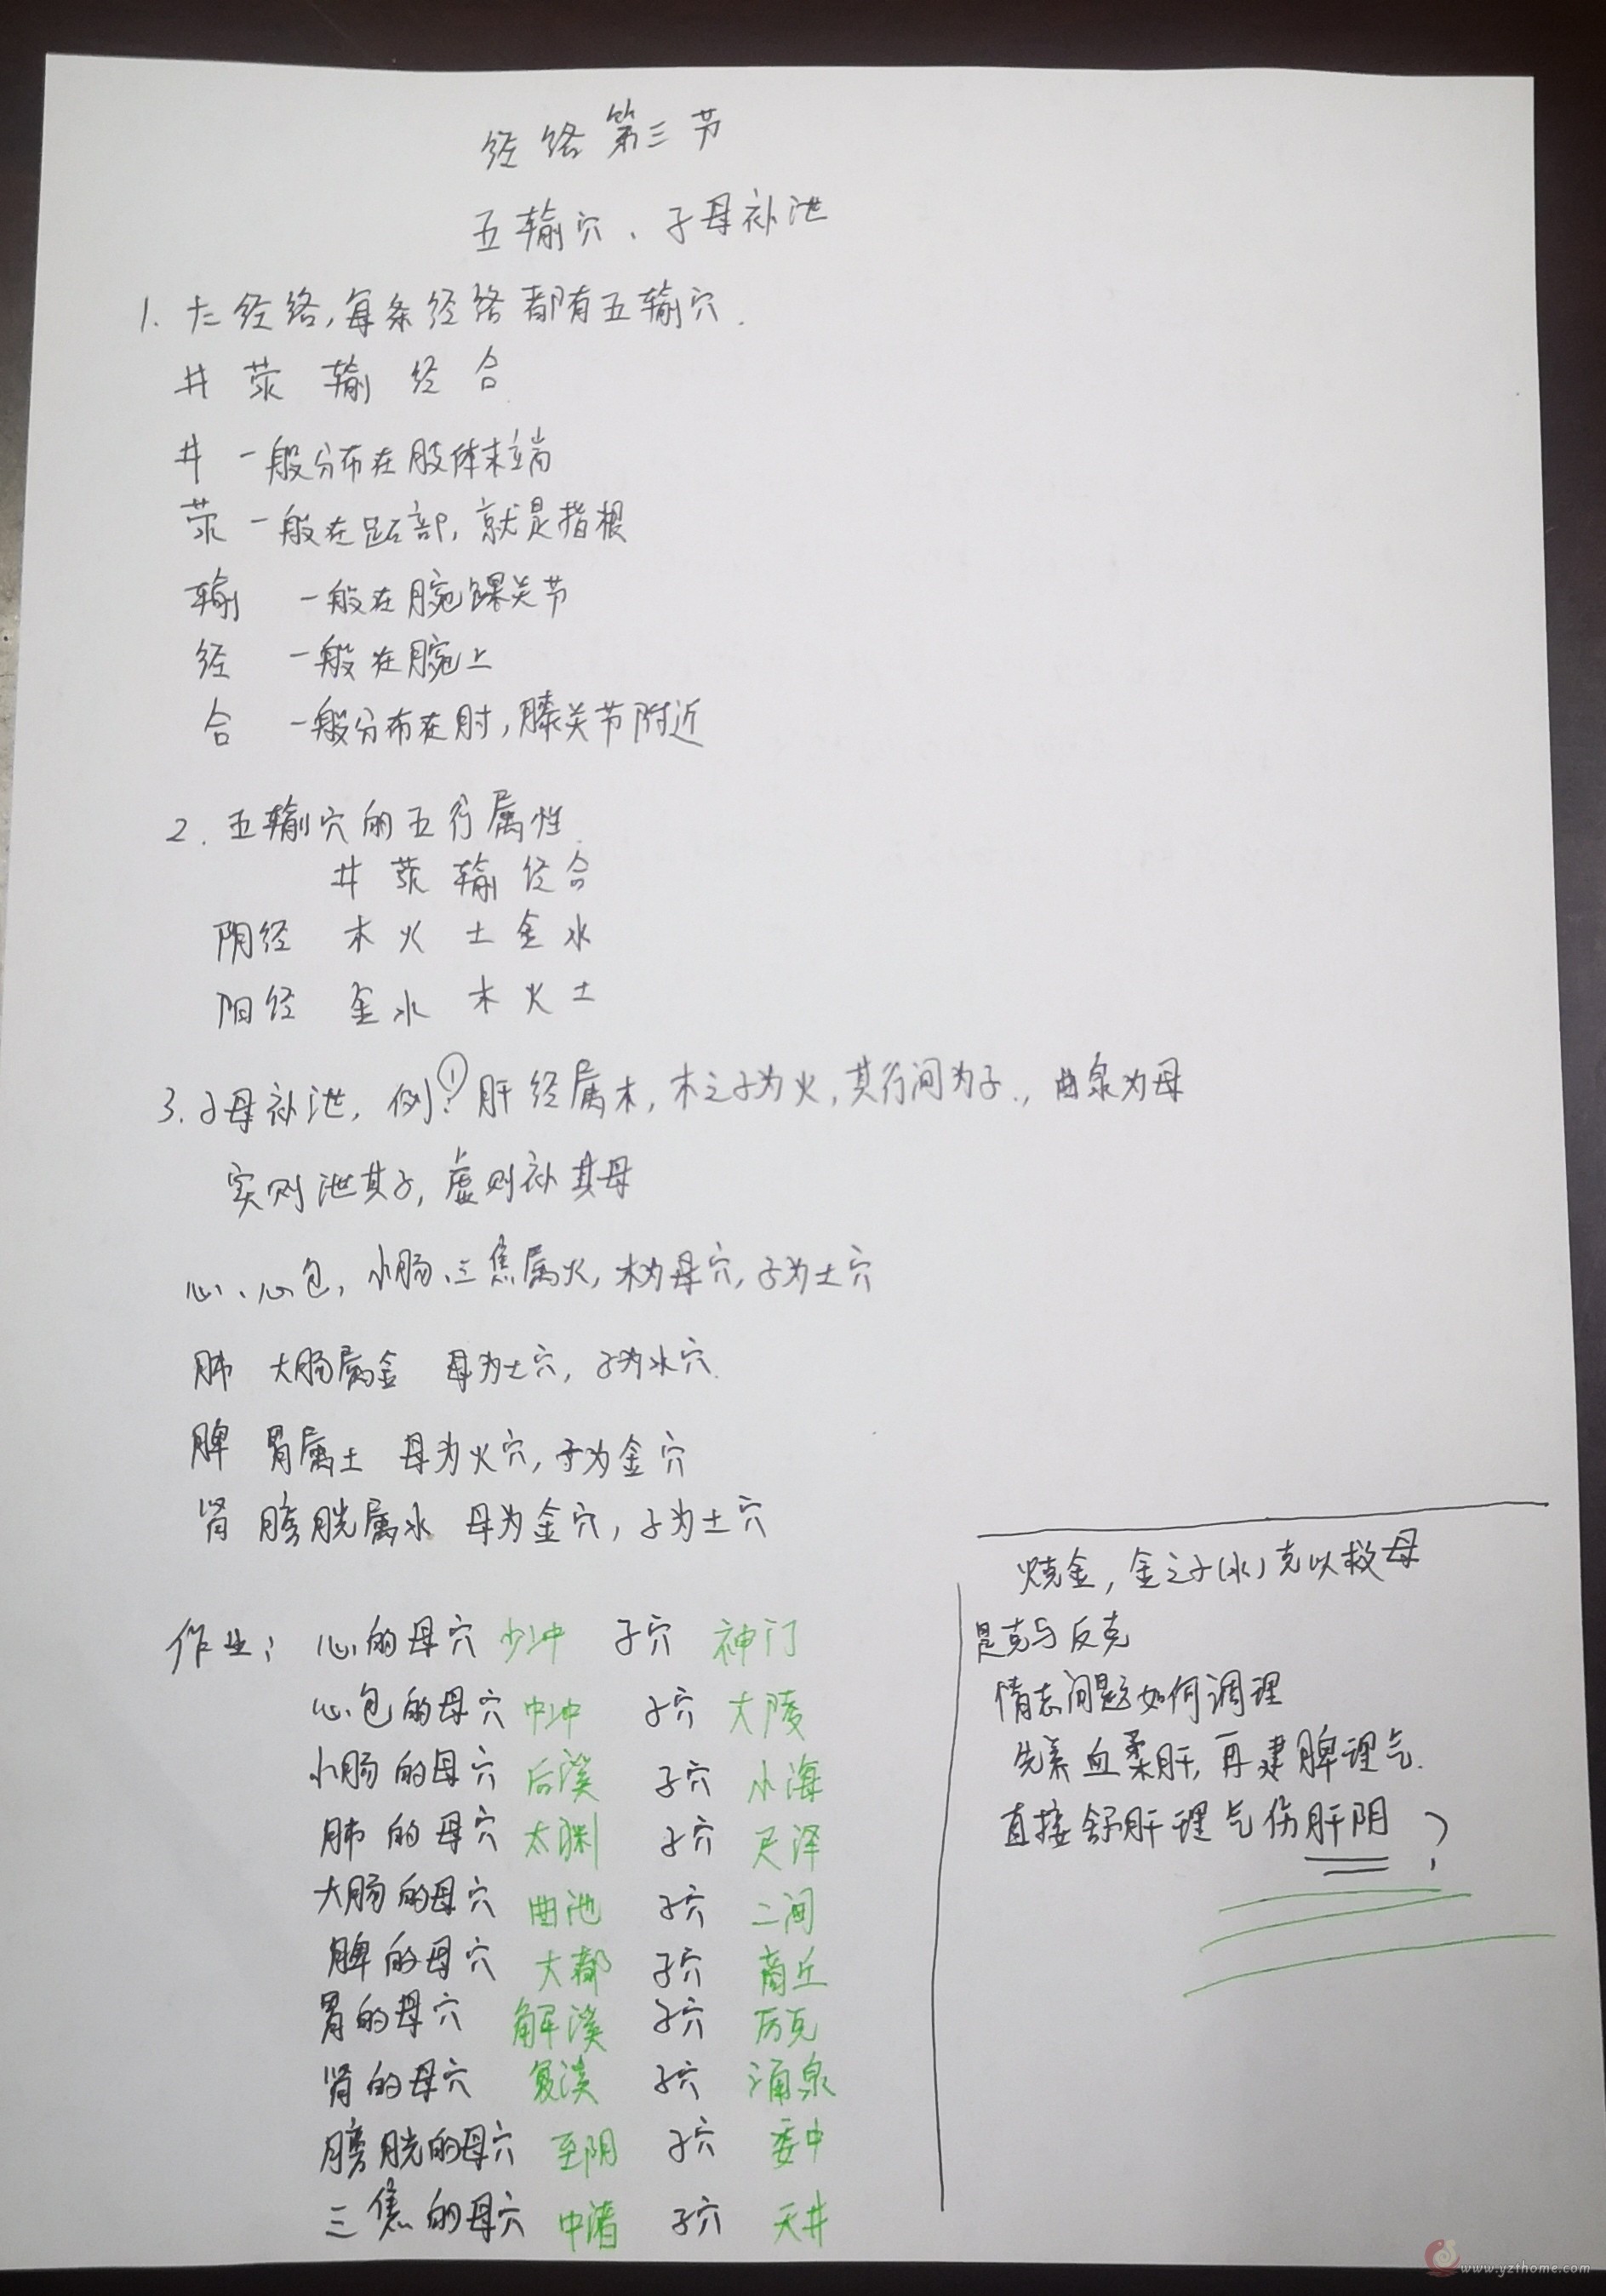 经络第三节
五输穴、子母补泄
1. 十二经络,每条经络都有五输穴.
井 荥 输 经 合
井 一般分布在肢体末端
荥 一般在跖部,就是指根
输 一般在腕踝关节
经 一般在腕上
合 一般分布在肘,膝关节附近
2. 五输穴的五行属性.
井 荥 输 经 合
阴经 木 火 土 金 水
阳经 金 水 木 火 土
3. 子母补泄,例①:肝经属木,木之子为火,其行间为子.,曲泉为母
实则泄其子,虚则补其母
心、心包,小肠、三焦属火,木为母穴,子为土穴
肺 大肠属金 母为土穴,子为水穴.
脾 胃属土 母为火穴,子为金穴
肾 膀胱属水 母为金穴,子为土穴
作业: 心的母穴 少冲 子穴 神门
心包的母穴 中冲 子穴 大陵
小肠的母穴 后溪 子穴 小海
肺的母穴 太渊 子穴 尺泽
大肠的母穴 曲池 子穴 二间
脾的母穴 大都 子穴 商丘
胃的母穴 解溪 子穴 厉兑
肾的母穴 复溪 子穴 涌泉
膀胱的母穴 至阴 子穴 委中
三焦的母穴 中渚 子穴 天井
火克金,金之子(水)克以救母
是克与反克
情志问题如何调理
先养血柔肝,再建脾理气.
直接舒肝理气伤肝阴?
www.yzthome.com